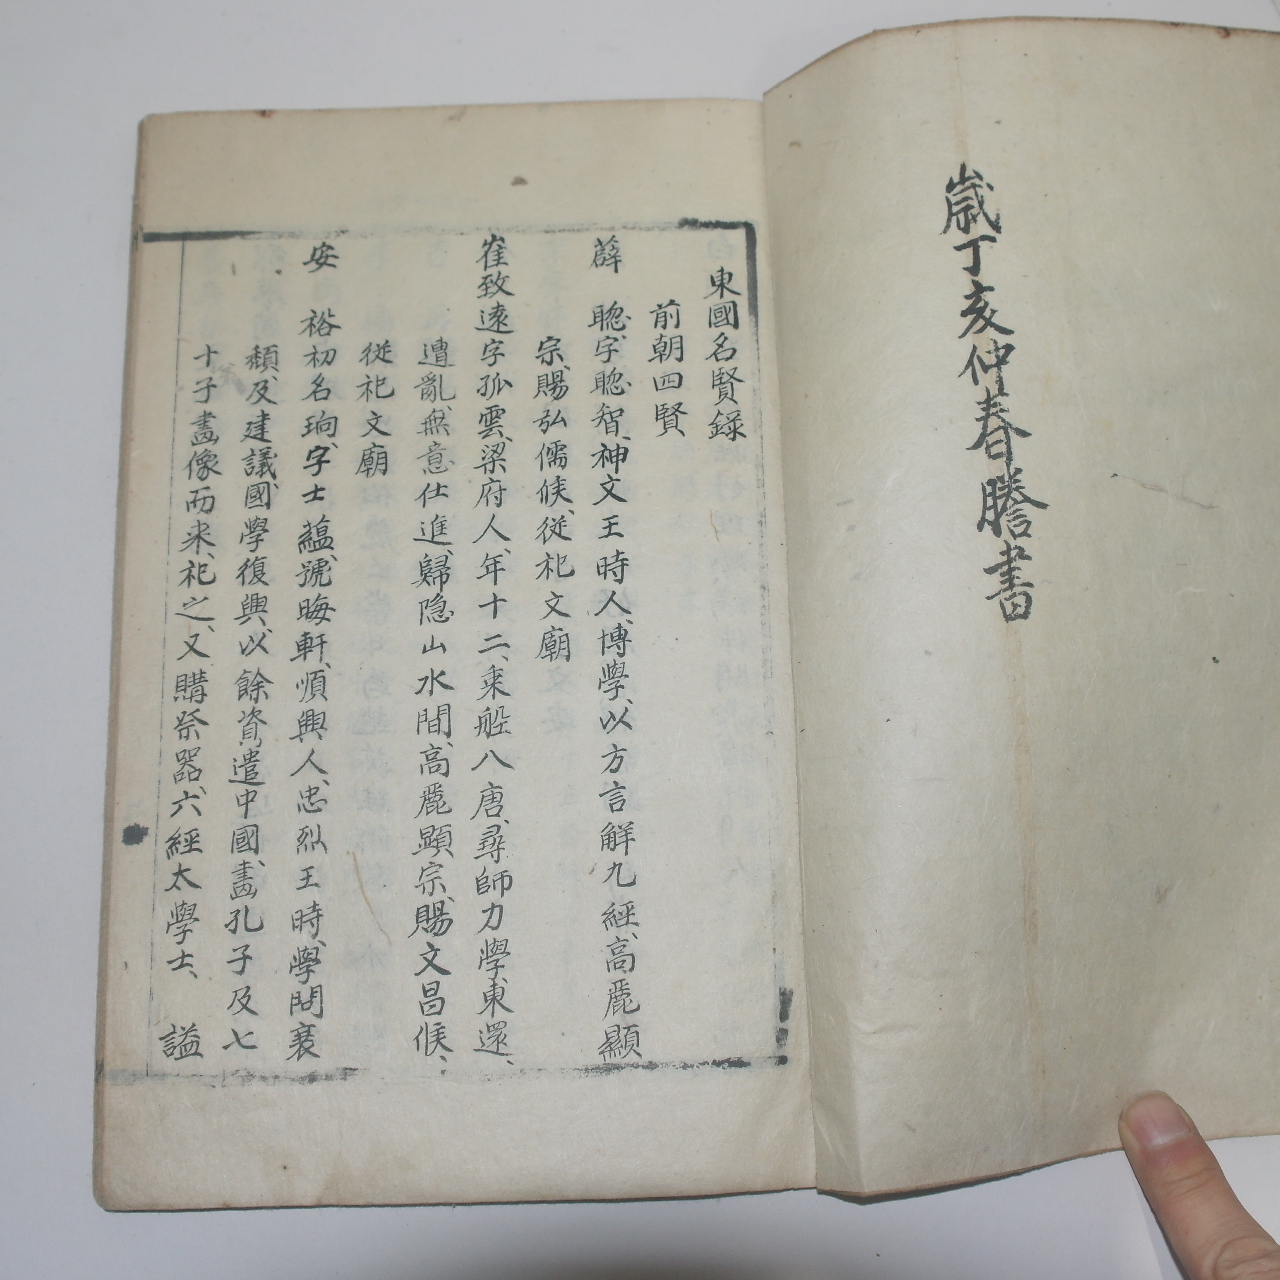 歲丁亥仲春謄書
東國名賢錄
前朝四賢
薛聰、字聰智、神文王時人、博學、以方言解九經、高麗顯
宗、賜弘儒侯、從祀文廟
崔致遠字孤雲、梁府人、年十二、乘船入唐、尋師力學、東還、
遭亂、無意仕進、歸隐山水間、高麗顯宗、賜文昌侯、
從祀文廟
安裕初名珦、字士蘊、號晦軒、順興人、忠烈王時、學問衰
頹、及建議國學復興、以餘資遣中國、畵孔子及七
十子畵像而来、祀之、又購祭器、六經太學士、謚